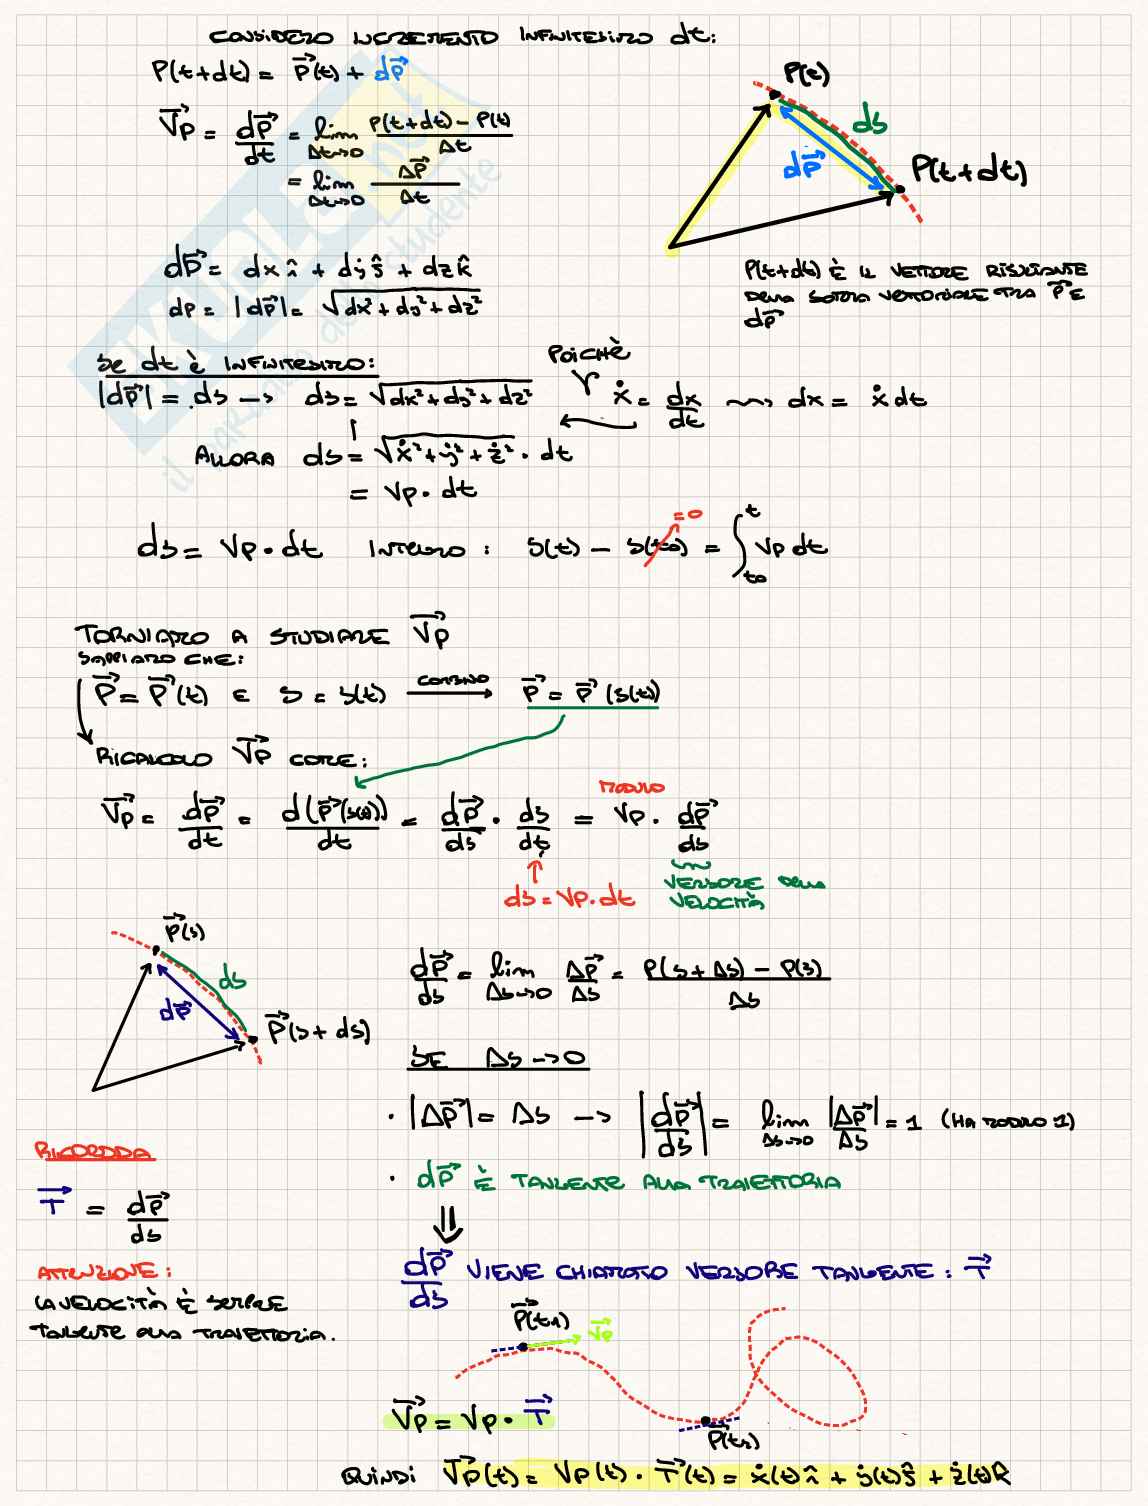 CONSIDERO INCREMENTO INFINITESIMO dt:
P(t+dt) = P⃗(t) + dP⃗
V⃗p = dP⃗/dt = lim Δt→0 P(t+dt) - P(t) / Δt
= lim Δt→0 ΔP⃗/Δt
P(t)
ds
dP⃗
P(t+dt)
P(t+dt) È IL VETTORE RISULTANTE
DELLA SOMMA VETTORIALE TRA P⃗ E
dP⃗
dP⃗ = dx î + dy ĵ + dz k̂
dP = |dP⃗| = √dx²+dy²+dz²
SE dt È INFINITESIMO:
|dP⃗| = ds → ds = √dx²+dy²+dz²
POICHÈ
ẋ = dx/dt ⇝ dx = ẋ dt
ALLORA ds = √ẋ²+ẏ²+ż² · dt
= Vp · dt
ds = Vp · dt INTEGRO : s(t) - s(t0) = ∫ t0 t Vp dt
=0
TORNIAMO A STUDIARE V⃗p
SAPPIAMO CHE:
P⃗ = P⃗(t) E s = s(t) COMBINO → P⃗ = P⃗(s(t))
RICALCOLO V⃗p COME:
V⃗p = dP⃗/dt = d(P⃗(s(t)))/dt = dP⃗/ds · ds/dt = Vp · dP⃗/ds
MODULO
ds = Vp · dt
VERSORE DELLA
VELOCITÀ
P⃗(s)
ds
dP⃗
P⃗(s + ds)
dP⃗/ds = lim Δs→0 ΔP⃗/Δs = P(s + Δs) - P(s) / Δs
SE Δs → 0
· |ΔP⃗| = Δs → |dP⃗/ds| = lim Δs→0 |ΔP⃗|/Δs = 1 (HA MODULO 1)
· dP⃗ È TANGENTE ALLA TRAIETTORIA
⇓
dP⃗/ds VIENE CHIAMATO VERSORE TANGENTE : T⃗
RICORDDA
T⃗ = dP⃗/ds
ATTENZIONE:
LA VELOCITÀ È SEMPRE
TANGENTE ALLA TRAIETTORIA.
P⃗(t1)
V⃗p
V⃗p = Vp · T⃗
P⃗(t2)
QUINDI V⃗p(t) = Vp(t) · T⃗(t) = ẋ(t) î + ẏ(t) ĵ + ż(t) k̂